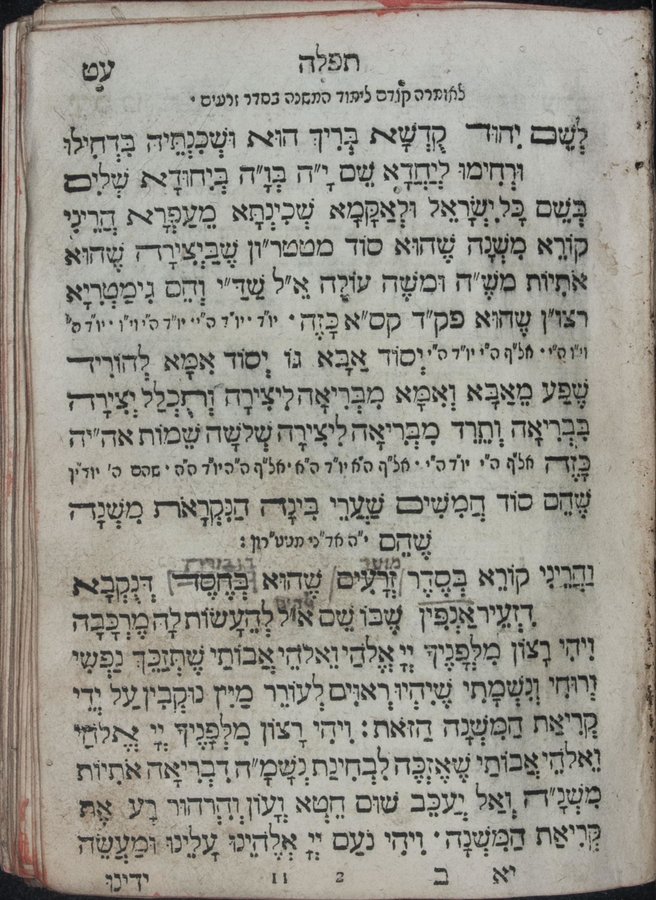 תפלה
עט
לאומרה קודם לימוד המשנה בסדר זרעים ·
לְשֵׁם יִחוּד קֻדְשָׁא בְּרִיךְ הוּא וּשְׁכִנְתֵּיהּ בִּדְחִילוּ
וּרְחִימוּ לְיַחֲדָא שֵׁם י"ה בְּו"ה בְּיִחוּדָא שְׁלִים
בְּשֵׁם כָּל יִשְׂרָאֵל וּלְאַקָּמָא שְׁכִינְתָּא מֵעַפְרָא הֲרֵינִי
קוֹרֵא מִשְׁנָה שֶׁהוּא סוֹד מטטר"ון שֶׁבַּיְצִירָה שֶׁהוּא
אֹתִיּוֹת מֹשֶׁ"ה וּמֹשֶׁה עוֹלֶה אֵ"ל שַׁדַּ"י וְהֵם גִּימַטְרִיָּא
רצו"ן שֶׁהוּא פק"ד קס"א כָּזֶה · יו"ד · יו"ד ה"י · יו"ד ה"י וי"ו · יו"ד ה"י
וי"ו ה"י · אל"ף ה"י יו"ד ה"י יְסוֹד אַבָּא גוֹ יְסוֹד אִמָּא לְהוֹרִיד
שֶׁפַע מֵאַבָּא וְאִמָּא מִבְּרִיאָה לִיצִירָה וְתֻכְלַל יְצִירָה
בַּבְּרִיאָה וְתֵרֵד מִבְּרִיאָה לִיצִירָה שְׁלֹשָׁה שֵׁמוֹת אה"יה
כָּזֶה אל"ף ה"י יו"ד ה"י · אל"ף ה"א יו"ד ה"א · אל"ף ה"ה יו"ד ה"ה · שהם ה' יוד"ין
שֶׁהֵם סוֹד הֲמִשִּׁים שַׁעֲרֵי בִּינָה הַנִּקְרָאֹת מִשְׁנָה
שֶׁהֵם י"ה אד"ני מטט"רון :
וַהֲרֵינִי קוֹרֵא בְּסֵדֶר זְרָעִים שֶׁהוּא בְּחֶסֶד דְּנֻקְבָא
דִּזְעֵיר אַנְפִּין שֶׁבּוֹ שֵׁם א"ל לְהֵעָשׂוֹת לָהּ מֶרְכָּבָה
וִיהִי רָצוֹן מִלְּפָנֶיךָ יְיָ אֱלֹהַי וֵאלֹהֵי אֲבוֹתַי שֶׁתְּזַכֵּךְ נַפְשִׁי
וְרוּחִי וְנִשְׁמָתִי שֶׁיִּהְיוּ רְאוּיִם לְעוֹרֵר מַיִּין נוּקְבִין עַל יְדֵי
קְרִיאַת הַמִּשְׁנָה הַזֹּאת : וִיהִי רָצוֹן מִלְּפָנֶיךָ יְיָ אֱלֹהַי
וֵאלֹהֵי אֲבוֹתַי שֶׁאֶזְכֶּה לִבְחִינַת נְשָׁמָ"ה דִבְרִיאָה אֹתִיּוֹת
מִשְׁנָ"ה וְאַל יְעַכֵּב שׁוּם חֵטְא וְעָוֹן וְהִרְהוּר רַע אֶת
קְרִיאַת הַמִּשְׁנָה · וִיהִי נֹעַם יְיָ אֱלֹהֵינוּ עָלֵינוּ וּמַעֲשֵׂה
יא ב 2 11 ידינו